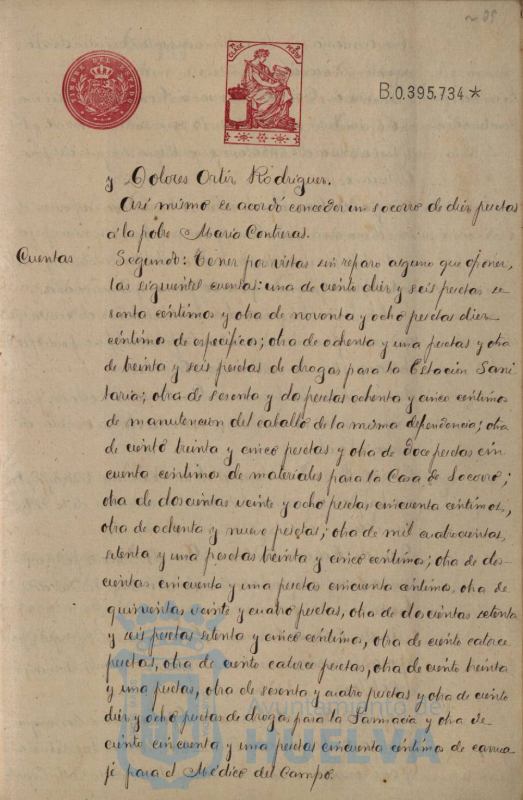 35
1ª CLASE PESETAS
B.0.395,734*
y Dolores Ortiz Rodriguez.
Asi mismo se acordó conceder un socorro de diez pesetas
á la pobre Maria Contreras.
Cuentas
Segundo: Tener por vistas sin reparo alguno que oponer,
las siguientes cuentas: una de ciento diez y seis pesetas se
senta céntimos y otra de noventa y ocho pesetas diez
céntimos de especificos; otra de ochenta y una pesetas y otra
de treinta y seis pesetas de drogas para la Estación Sani
taria; otra de sesenta y dos pesetas ochenta y cinco centimos
de manutencion del caballo de la misma dependencia; otra
de ciento treinta y cinco pesetas y otra de doce pesetas cin
cuenta centimos de materiales para la Casa de Socorro;
otra de doscientas veinte y ocho pesetas cincuenta centimos,
otra de ochenta y nueve pesetas; otra de mil cuatrocientas,
setenta y una pesetas treinta y cinco céntimos; otra de dos-
cientas, cincuenta y una pesetas cincuenta céntimos, otra de
quinientas veinte y cuatro pesetas, otra de doscientas setenta
y seis pesetas setenta y cinco céntimos, otra de ciento catorce
pesetas, otra de ciento catorce pesetas, otra de ciento treinta
y una pesetas, otra de sesenta y cuatro pesetas y otra de ciento
diez y ocho pesetas de drogas para la Farmacia y otra de
ciento cincuenta y una pesetas cincuenta centimos de carrua
je para el Médico del Campo.
Ayuntamiento de
HUELVA